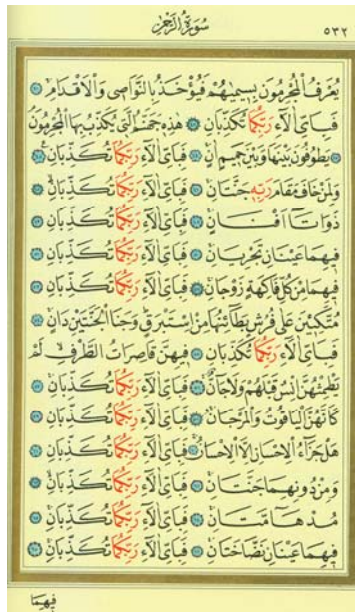 سُورَةُ الرَّحْمٰنِ ٥٣٢
يُعْرَفُ الْمُجْرِمُونَ بِسِيمٰيهُمْ فَيُؤْخَذُ بِالنَّوَاصِى وَالْاَقْدَامِ
فَبِاَىِّ اٰلَاۤءِ رَبِّكُمَا تُكَذِّبَانِ هٰذِهِ جَهَنَّمُ الَّتِى يُكَذِّبُ بِهَا الْمُجْرِمُونَ
يَطُوفُونَ بَيْنَهَا وَبَيْنَ حَمِيمٍ اٰنٍ فَبِاَىِّ اٰلَاۤءِ رَبِّكُمَا تُكَذِّبَانِ
وَلِمَنْ خَافَ مَقَامَ رَبِّهِ جَنَّتَانِ فَبِاَىِّ اٰلَاۤءِ رَبِّكُمَا تُكَذِّبَانِ
ذَوَاتَاۤ اَفْنَانٍ فَبِاَىِّ اٰلَاۤءِ رَبِّكُمَا تُكَذِّبَانِ
فِيهِمَا عَيْنَانِ تَجْرِيَانِ فَبِاَىِّ اٰلَاۤءِ رَبِّكُمَا تُكَذِّبَانِ
فِيهِمَا مِنْ كُلِّ فَاكِهَةٍ زَوْجَانِ فَبِاَىِّ اٰلَاۤءِ رَبِّكُمَا تُكَذِّبَانِ
مُتَّكِـِٔينَ عَلٰى فُرُشٍ بَطَاۤئِنُهَا مِنْ اِسْتَبْرَقٍ وَجَنَا الْجَنَّتَيْنِ دَانٍ
فَبِاَىِّ اٰلَاۤءِ رَبِّكُمَا تُكَذِّبَانِ فِيهِنَّ قَاصِرَاتُ الطَّرْفِ لَمْ
يَطْمِثْهُنَّ اِنْسٌ قَبْلَهُمْ وَلَا جَاۤنٌّ فَبِاَىِّ اٰلَاۤءِ رَبِّكُمَا تُكَذِّبَانِ
كَاَنَّهُنَّ الْيَاقُوتُ وَالْمَرْجَانُ فَبِاَىِّ اٰلَاۤءِ رَبِّكُمَا تُكَذِّبَانِ
هَلْ جَزَاۤءُ الْاِحْسَانِ اِلَّا الْاِحْسَانُ فَبِاَىِّ اٰلَاۤءِ رَبِّكُمَا تُكَذِّبَانِ
وَمِنْ دُونِهِمَا جَنَّتَانِ فَبِاَىِّ اٰلَاۤءِ رَبِّكُمَا تُكَذِّبَانِ
مُدْهَاۤمَّتَانِ فَبِاَىِّ اٰلَاۤءِ رَبِّكُمَا تُكَذِّبَانِ
فِيهِمَا عَيْنَانِ نَضَّاخَتَانِ فَبِاَىِّ اٰلَاۤءِ رَبِّكُمَا تُكَذِّبَانِ
فِيهِمَا